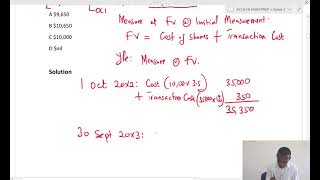 A $9,650
B $10,650
C $10,000
D $nil
Solution
Measure at FV @ Initial Measurement:
FV = Cost of shares + Transaction Cost
Y/e: Measure @ FV.
1 Oct 20X2: Cost (10,000 x 3.5) 35,000
+ Transaction Cost (35000 x 1%) 350
35,350
30 Sept 20X3: